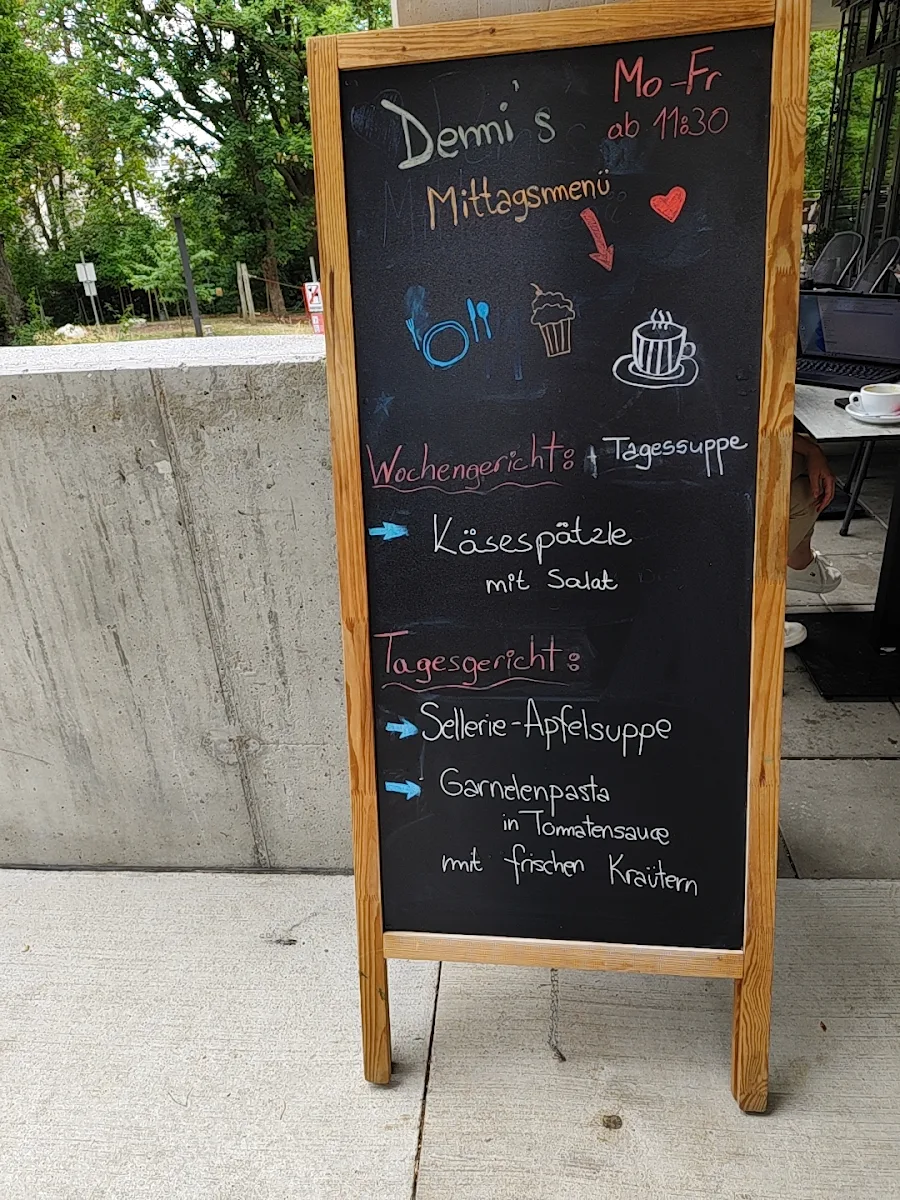 Demi's
Mo-Fr
ab 11:30
Mittagsmenü
Wochengericht: + Tagessuppe
Käsespätzle
mit Salat
Tagesgericht:
Sellerie-Apfelsuppe
Garnelenpasta
in Tomatensauce
mit frischen Kraütern